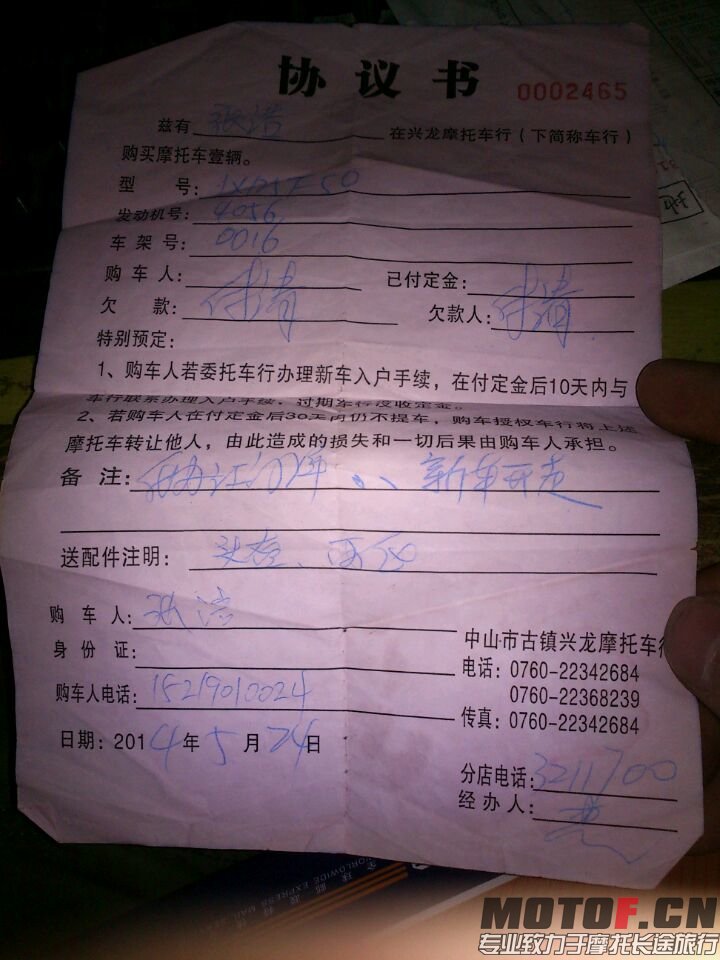 协议书 0002465
兹有 张浩 在兴龙摩托车行（下简称车行）
购买摩托车壹辆。
型 号: 50
发动机号: 4056
车架号: 0016
购车人: 已付定金:
欠 款: 付清 欠款人: 付清
特别预定:
1、购车人若委托车行办理新车入户手续，在付定金后10天内与
车行联系办理入户手续，过期车行没收定金。
2、若购车人在付定金后30天内仍不提车，购车授权车行将上述
摩托车转让他人，由此造成的损失和一切后果由购车人承担。
备 注: 新车开走
送配件注明: 头盔、
购 车 人: 张浩
身 份 证:
购车人电话: 15219010024
日期: 2014年5月24日
中山市古镇兴龙摩托车行
电话: 0760-22342684
0760-22368239
传真: 0760-22342684
分店电话: 3211700
经 办 人:
WORLDWIDE EXPRESS MAIL
MOTOF.CN
专业致力于摩托长途旅行